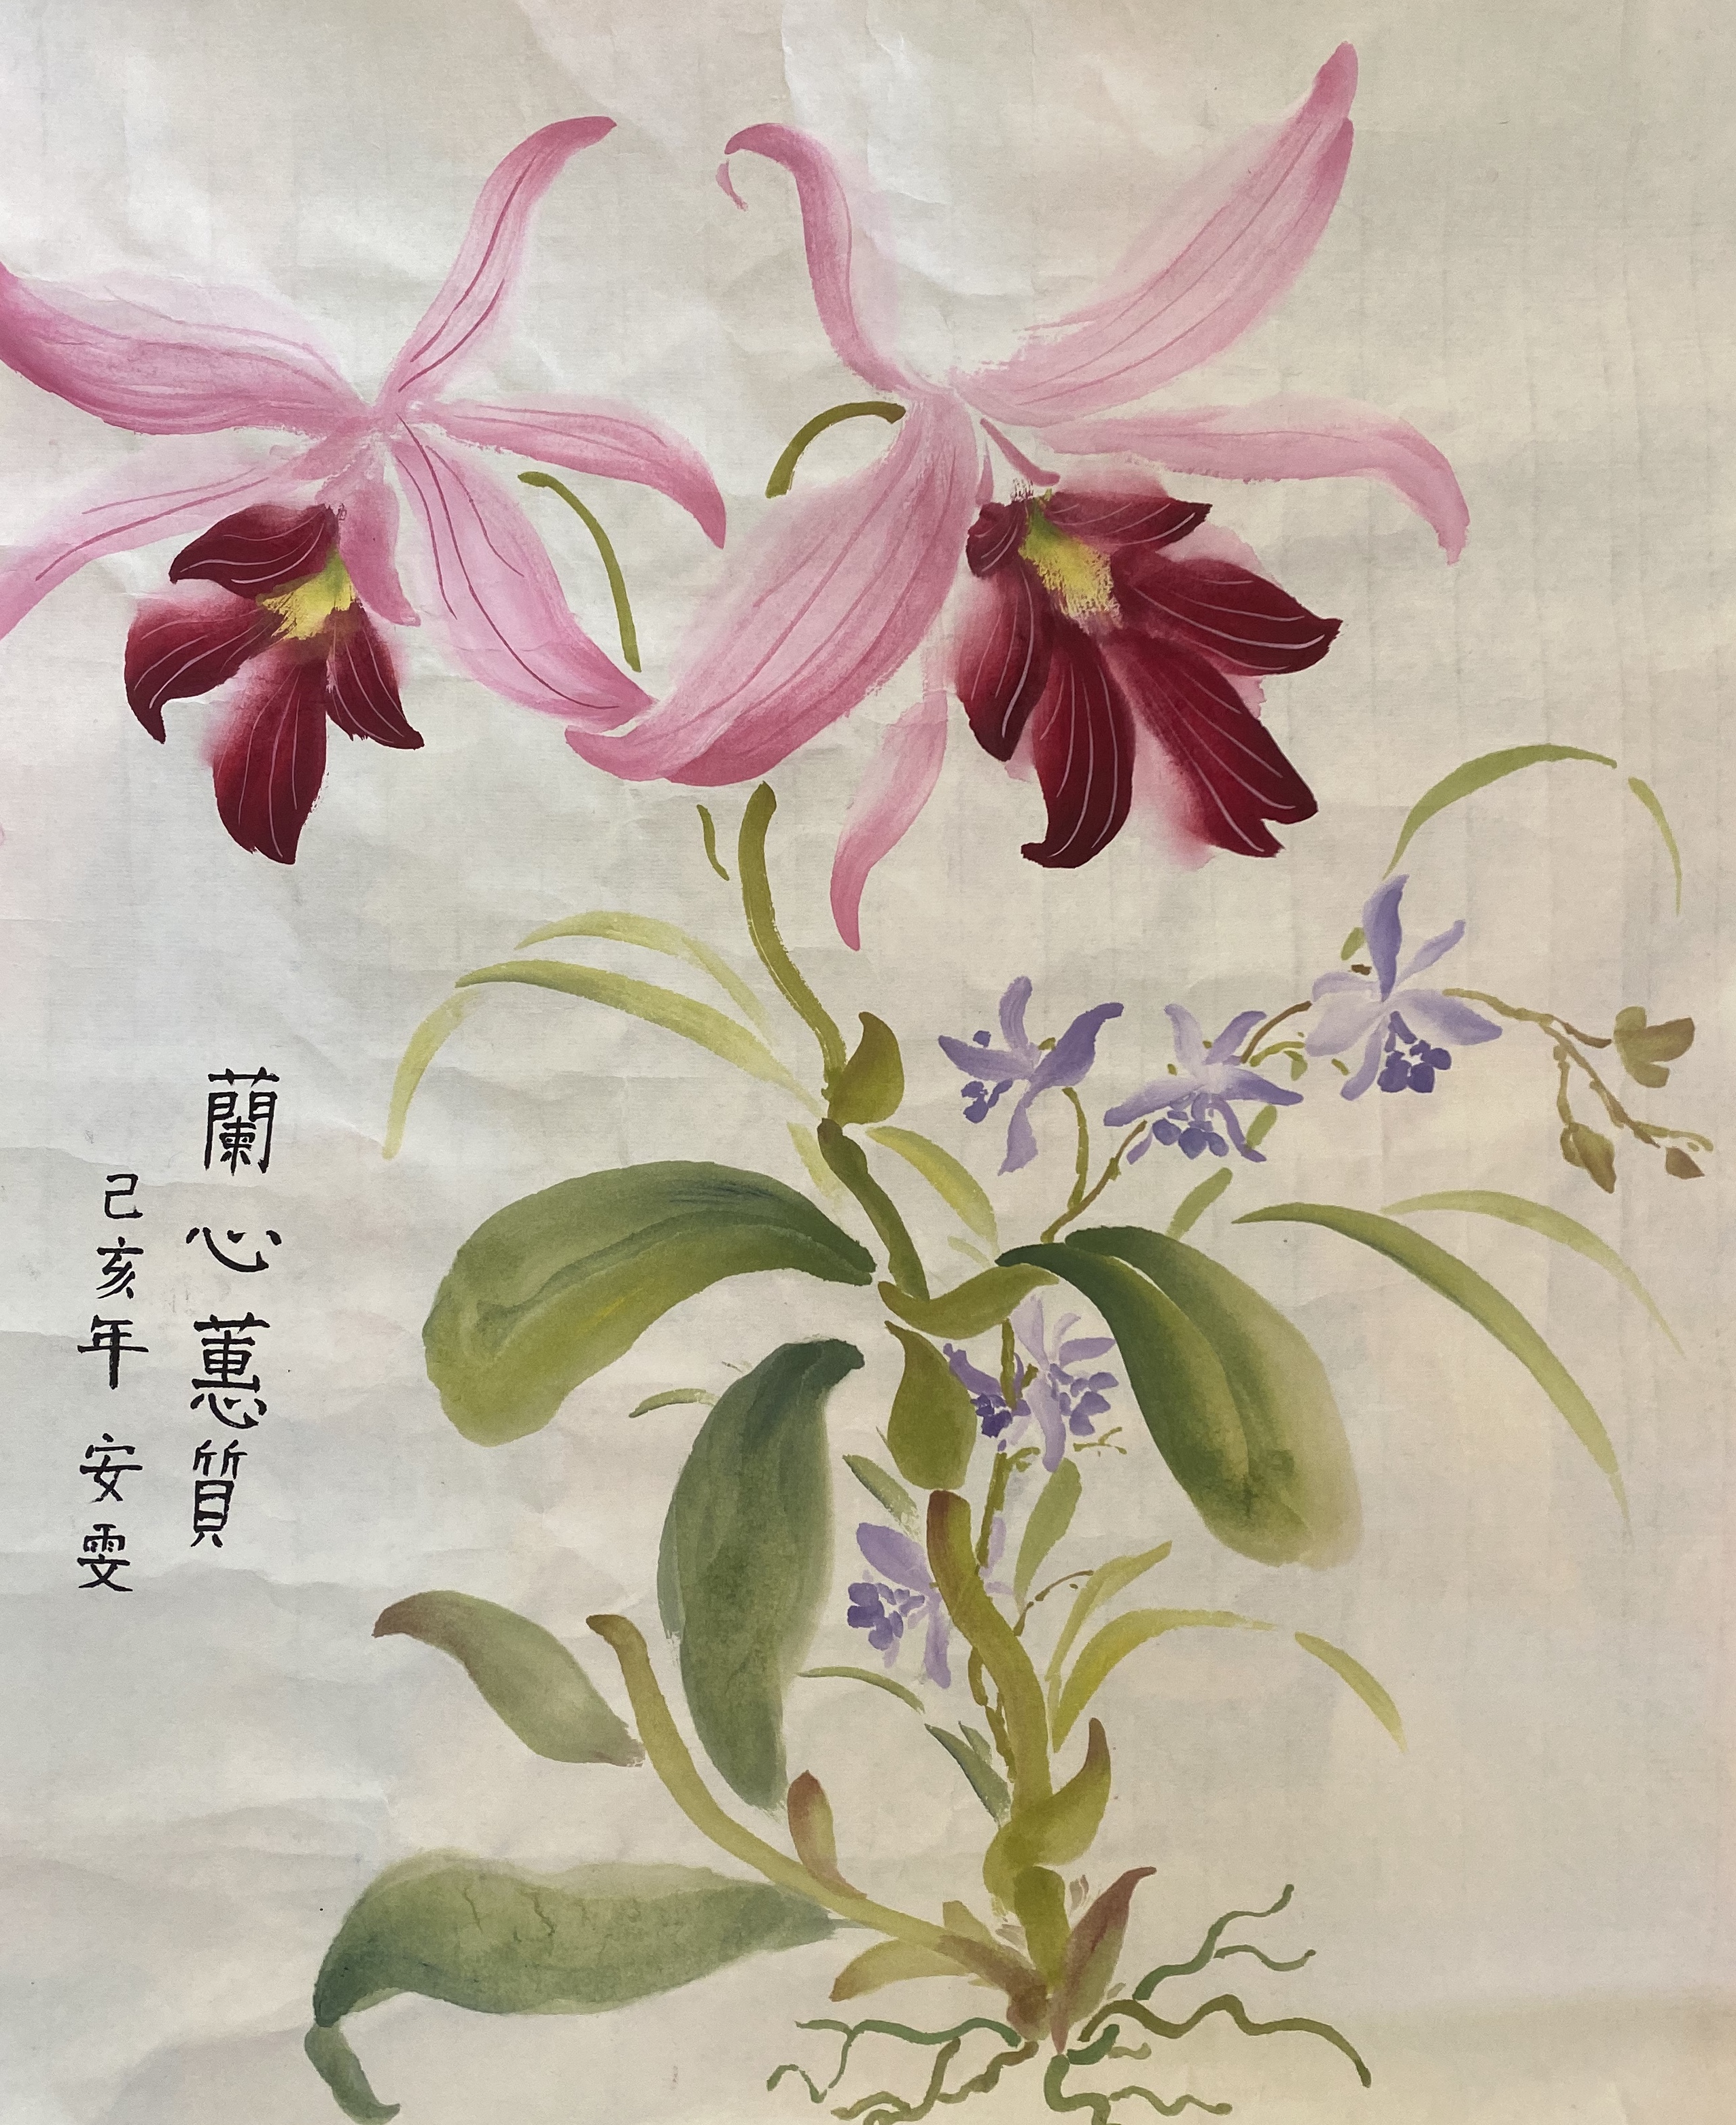 蘭心蕙質
己亥年 安雯